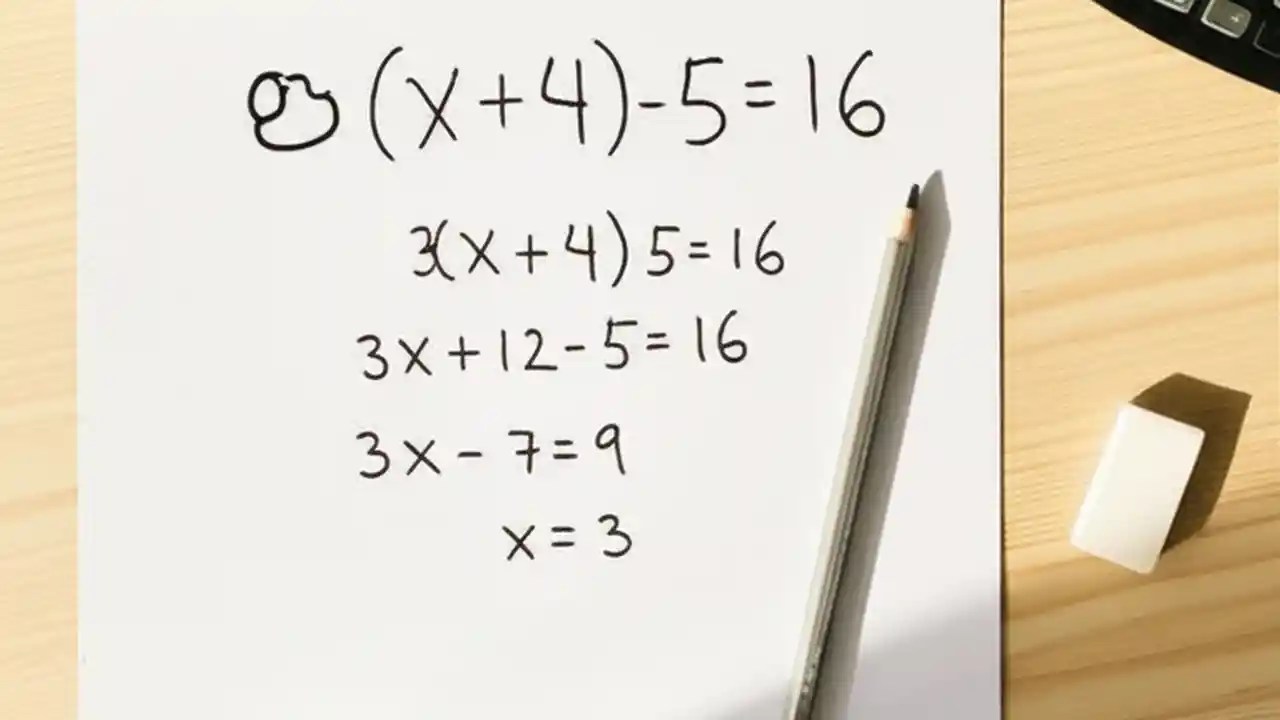 (x + 4) - 5 = 16
3(x + 4) 5 = 16
3x + 12 - 5 = 16
3x - 7 = 9
x = 3